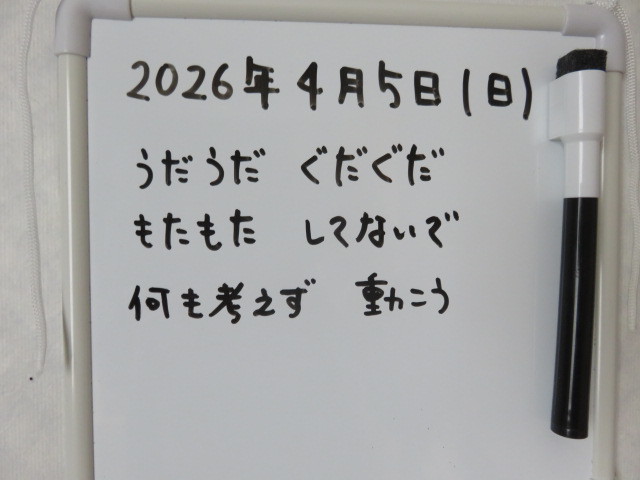 2026年4月5日(日)
うだうだ ぐだぐだ
もたもた してないで
何も考えず 動こう